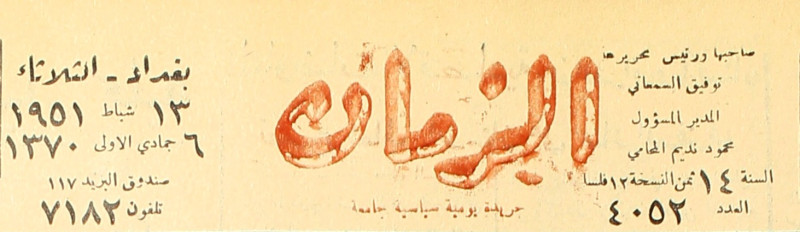 صاحبها ورئيس تحريرها
توفيق السمعاني
المدير المسؤول
محمود نديم المحامي
السنة ١٤ ثمن النسخة ١٢ فلسا
العدد ٤٠٥٢
الزمان
جريدة يومية سياسية جامعة
بغداد - الثلاثاء
١٣ شباط ١٩٥١
٦ جمادي الاولى ١٣٧٠
صندوق البريد ١١٧
تلفون ٧١٨٢